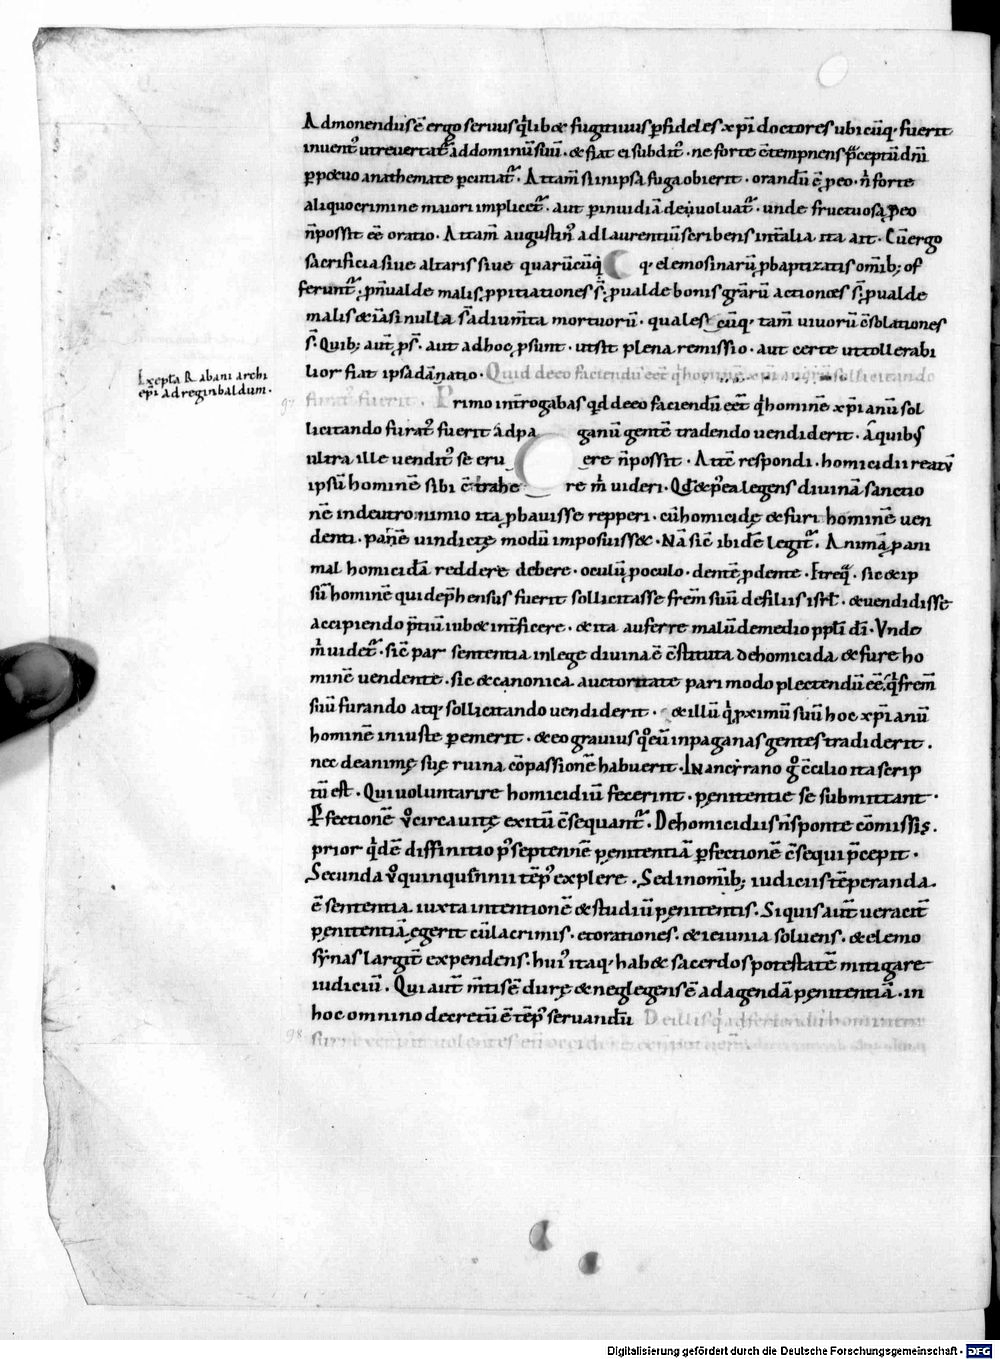 Admonendus ē ergo seruus q̇libæ fugitiuus ꝑfideles xp̄i doctores ubicūq; fuerit
inuent᾽ ut reuertat᾽ ad dominū suū · & fiat ei subdit᾽ · ne forte c̄tempnens p̄ceptū dn̄i
ꝑp&uo anathemate ꝑcutiat᾽ · Attam̄ si in ipsa fuga obierit · orandū ē ꝓ eo · n̄ forte
aliquo crimine maiori implicet᾽ · aut ꝑ inuidiā deuoluat᾽ · unde fructuosa ꝓ eo
n̄ possit eē oratio · Attam̄ augustin᾽ ad laurentiū scribens int̄ alia ita ait · Cū ergo
sacrificia siue altaris siue quarūcūq; elemosinarū ꝓ baptizatis om̄ib; of
ferunt᾽ · ꝓ n̄ ualde malis ꝓpitiationes s̄ · ꝓ ualde bonis gr̄arū actiones s̄ · ꝓ ualde
malis & iāsi nulla s̄ adium̄ta mortuorū · quales cūq; tam̄ uiuorū c̄solationes
s̄ · Quib; aut̄ ꝓs̄ · aut ad hoc ꝓsunt · ut sit plena remissio · aut certe ut tollerabi
lior fiat ipsa dānatio · Quid de eo faciendū eēt q̇ hominē xp̄ianū sollicitando
furat᾽ fuerit · Primo int̄rogabas qd̄ de eo faciendū eēt q̇ hominē xp̄ianū sol
Excepta Rabani archi
ep̄i ad reginbaldum ·
licitando furat᾽ fuerit ad paganū gentē tradendo uendiderit · a quib;
ultra ille uendit᾽ se eruere n̄ possit · At t̄e respondi · homicidii reatū
ipsū hominē sibi c̄trahere m̄ uideri · Qd̄ & ꝓea legens diuinā sanctio
nē in deutronimio ita ꝓhauisse repperi · cū homicidę & furi hominē uen
denti · parē uindictę modū imposuisset · Nā sic ibidē legit᾽ · Animā ꝓ ani
mal homicidā reddere debere · oculū ꝓ oculo · dentē ꝓ dente · Itēq; · sic & ip
sū hominē qui dep̄hensus fuerit sollicitasse frēm suū de filiis isrl̄ · & uendidisse
accipiendo p̄tiū iub& int̄ficere · & ita auferre malū de medio ppl̄i dī · Unde
m̄ uidet᾽ · sic par sententia in lege diuina ē c̄stituta de homicida & fure ho
minē uendente · sic & canonica auctoritate pari modo plectendū eē · q̇ frēm
suū furando atq; sollicitando uendiderit · & illū q̇ ꝓximū suū hoc xp̄ianū
hominē iniuste ꝑemerit · & eo grauius q̊ eū in paganas gentes tradiderit ·
nec de animę suę ruina cōpassionē habuerit · IN ancirano g̊ c̄cilio ita scrip
tū est · Qui uoluntarire homicidiū fecerint · pęnitentie se submittant ·
ꝑfectionē v̊ circa uitę exitū c̄sequant᾽ · De homicidiis n̄ sponte cōmissis ·
prior q̇dē diffinitio p᾽ septennē pęnitentiā ꝑfectionē c̄sequi p̄cepit ·
Secunda v̊ quinquennii tēp᾽ explere · Sed in om̄ib; iudiciis tēperanda
ē sententia iuxta intentionē & studiū pęnitentis · Si quis aut̄ ueracit̄
pęnitentiā egerit cū lacrimis · et orationes · & ieiunia soluens · & elemo
synas largit̄ expendens · hui᾽ itaq; hab& sacerdos potestatē mitigare
iudiciū · Qui aut̄ mtīs ē durę & neglegens ē ad agendā pęnitentiā · in
hoc omnino decretū ē tēp᾽ seruandū
Digitalisierung gefördert durch die Deutsche Forschungsgemeinschaft - DFG